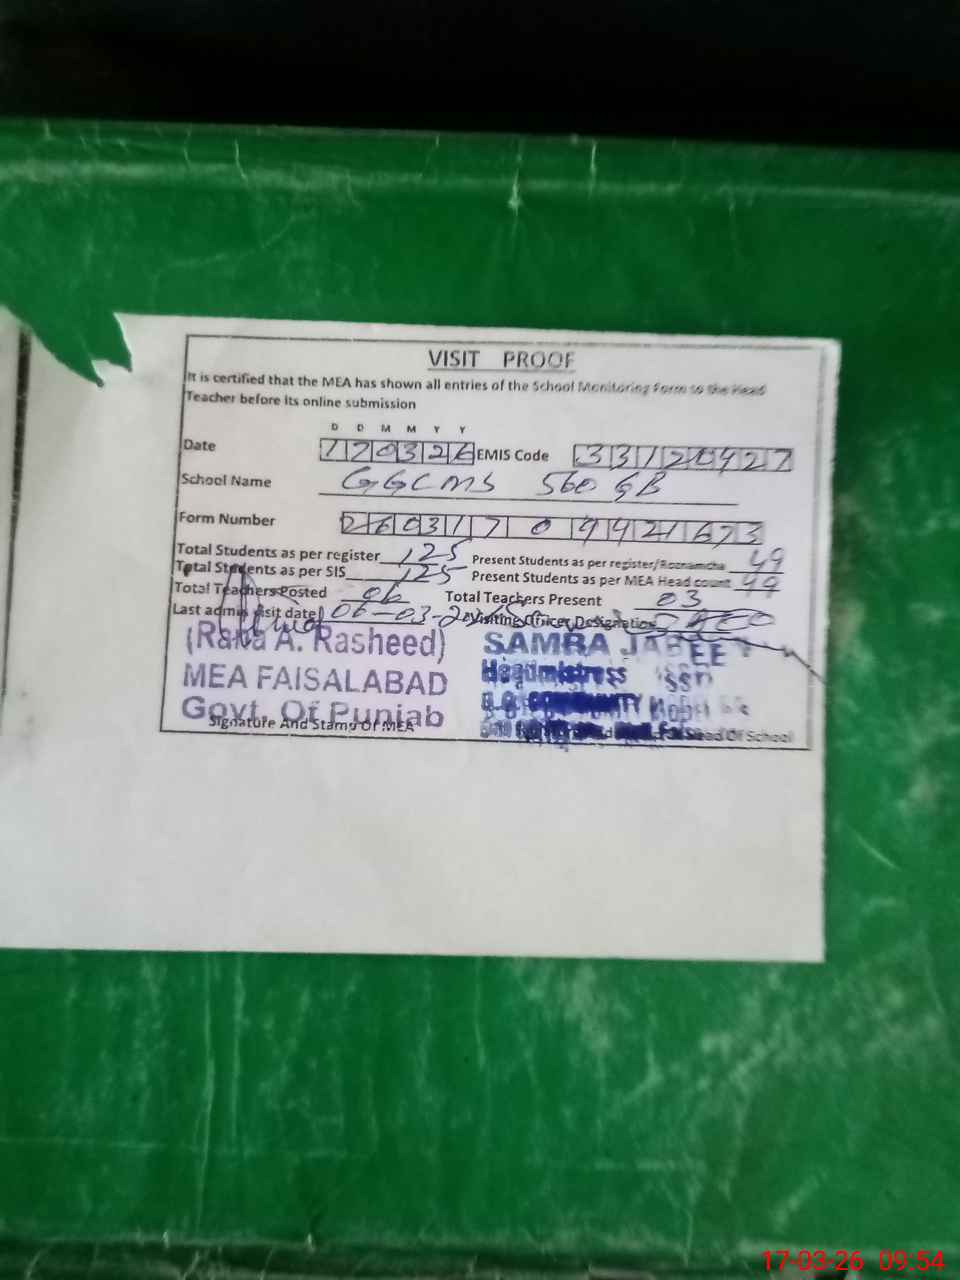 VISIT PROOF
It is certified that the MEA has shown all entries of the School Monitoring Form to the Head
Teacher before its online submission
D D M M Y Y
Date 170326 EMIS Code 33120427
School Name GGCMS 560 GB
Form Number 26031709421673
Total Students as per register 125 Present Students as per register/Roznamcha 49
Total Students as per SIS 125 Present Students as per MEA Head count 49
Total Teachers Posted 06 Total Teachers Present 03
Last admin visit date 06-03-2026 Visiting Officer Designation
(Rana A. Rasheed) SAMRA JABEE
MEA FAISALABAD Headmistress
Govt. Of Punjab COMMUNITY Model
Signature And Stamp Of MEA Head Of School
17-03-26 09:54